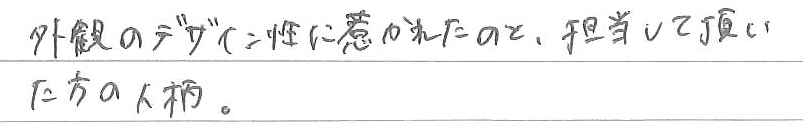 外観のデザイン性に惹かれたのと、担当して頂い
た方の人柄。